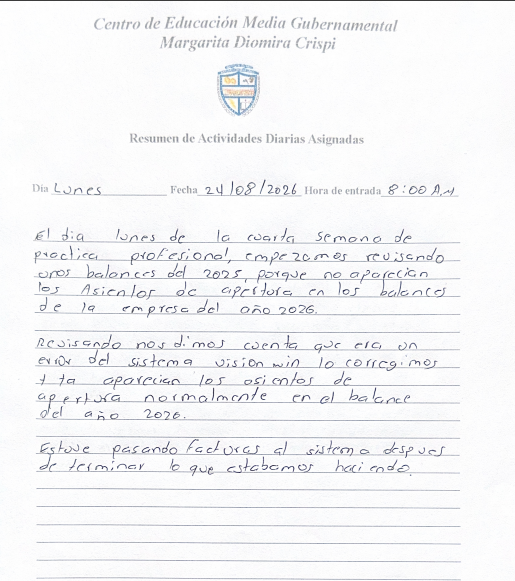 Centro de Educación Media Gubernamental
Margarita Diomira Crispi
Resumen de Actividades Diarias Asignadas
Día Lunes Fecha 24/08/2026 Hora de entrada 8:00 A.M
El dia lunes de la cuarta semana de
practica profesional, empezamos revisando
unos balances del 2025, porque no aparecian
los Asientos de apertura en los balances
de la empresa del año 2026.
Revisando nos dimos cuenta que era un
error del sistema vision win lo corregimos
y ya aparecian los asientos de
apertura normalmente en el balance
del año 2026.
Estuve pasando facturas al sistema despues
de terminar lo que estabamos haciendo.